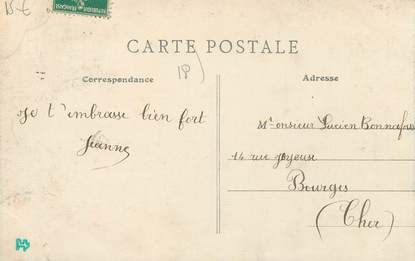 15 €
CARTE POSTALE
18)
Correspondance
Adresse
Je t'embrasse bien fort
Jeanne
Monsieur Lucien Bonnefoi
14 rue Joyeuse
Bourges
(Cher)